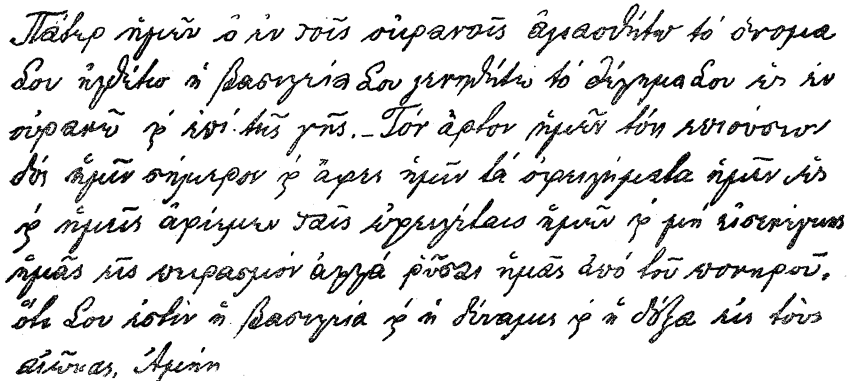 Πάτερ ἡμῶν ὁ ἐν τοῖς οὐρανοῖς ἁγιασθήτω τό ὄνομα
Σου ἠλθέτω ἡ βασιλεία Σου γενηθήτω τό θέλημα Σου ὡς ἐν
οὐρανῷ ϗ ἐπί τῆς γῆς. – Τόν ἄρτον ἡμῶν τόν ἐπιούσιον
δός ἡμῖν σήμερον ϗ ἄφες ἡμῖν τά ὀφειλήματα ἡμῶν ὡς
ϗ ἡμεῖς ἀφίεμεν τοῖς ὀφειλέταις ἡμῶν ϗ μή εἰσενέγκῃς
ἡμᾶς εἰς πειρασμόν ἀλλά ῥῦσαι ἡμᾶς ἀπό τοῦ πονηροῦ.
ὅτι Σου ἐστίν ἡ βασιλεία ϗ ἡ δύναμις ϗ ἡ δόξα εἰς τούς
αἰῶνας, Ἀμήν